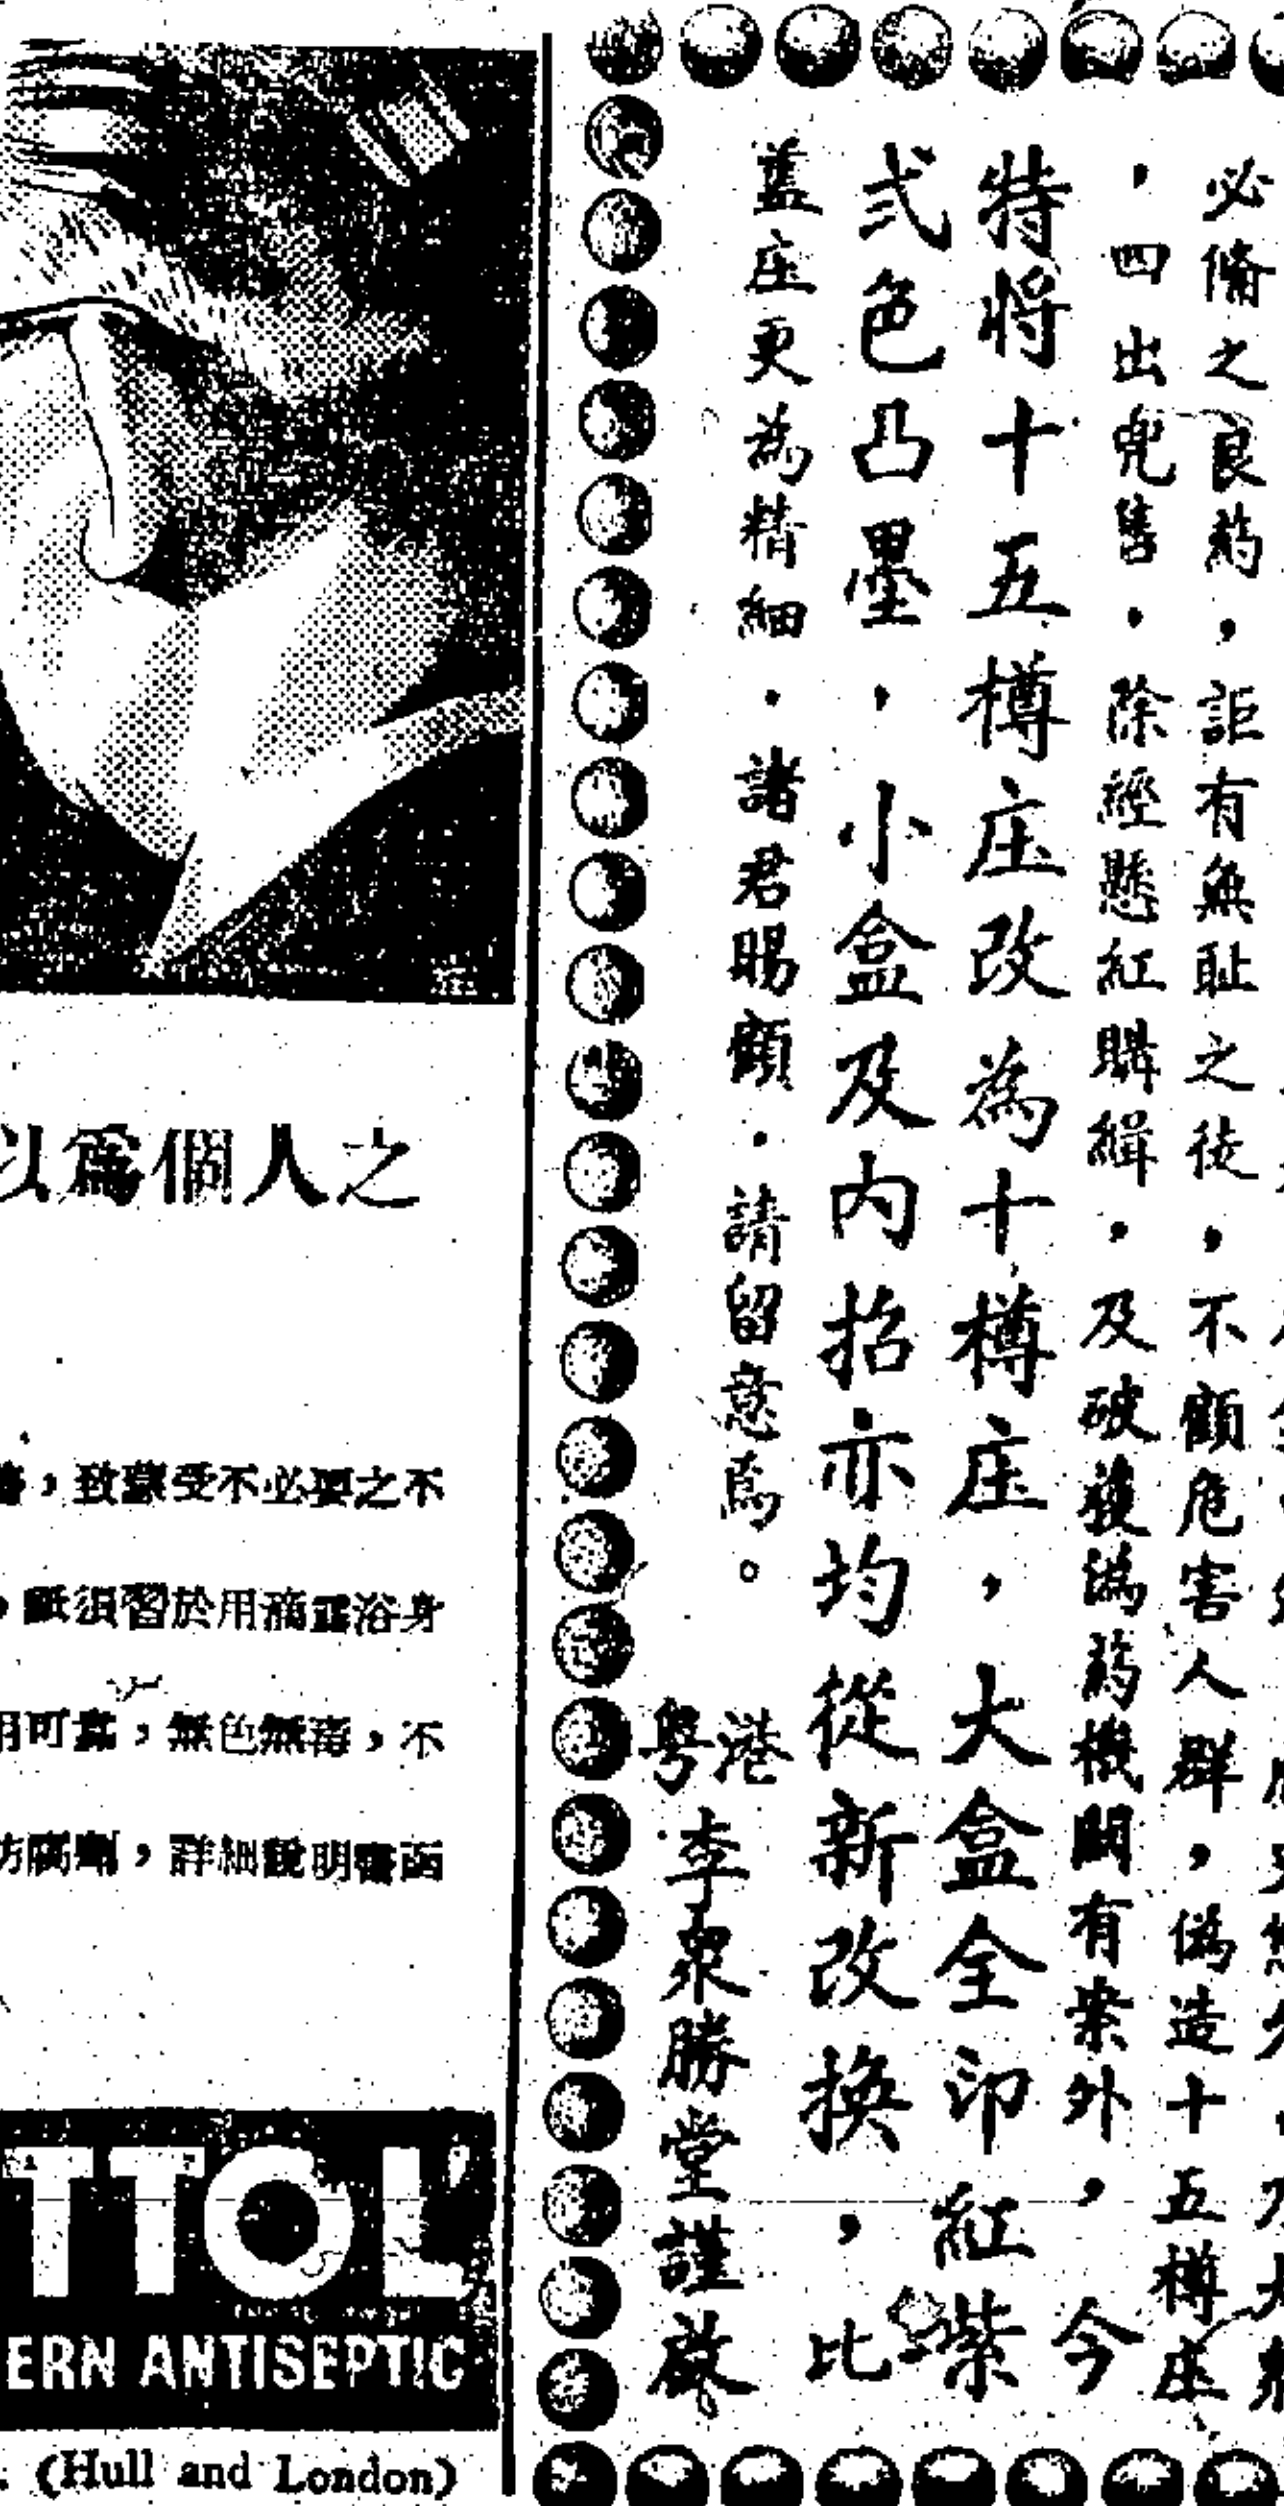 必備之良药，詎有無耻之徒，不顧危害人群，偽造十五樽庄
，四出兜售，除經懸紅購緝，及破獲偽药機関有案外，今
特將十五樽庄改為十樽庄，大盒全印紅紫
弍色凸墨，小盒及内招亦均從新改換，比
盖庄更為精細，諸君賜顧，請留意焉。
港粤李衆勝堂謹啟
以爲個人之
，致蒙受不必要之不
，須習於用滴 浴身
用可靠，無色無毒，不
防腐劑，詳細說明書函
TTOL
ERN ANTISEPTIC
(Hull and London)